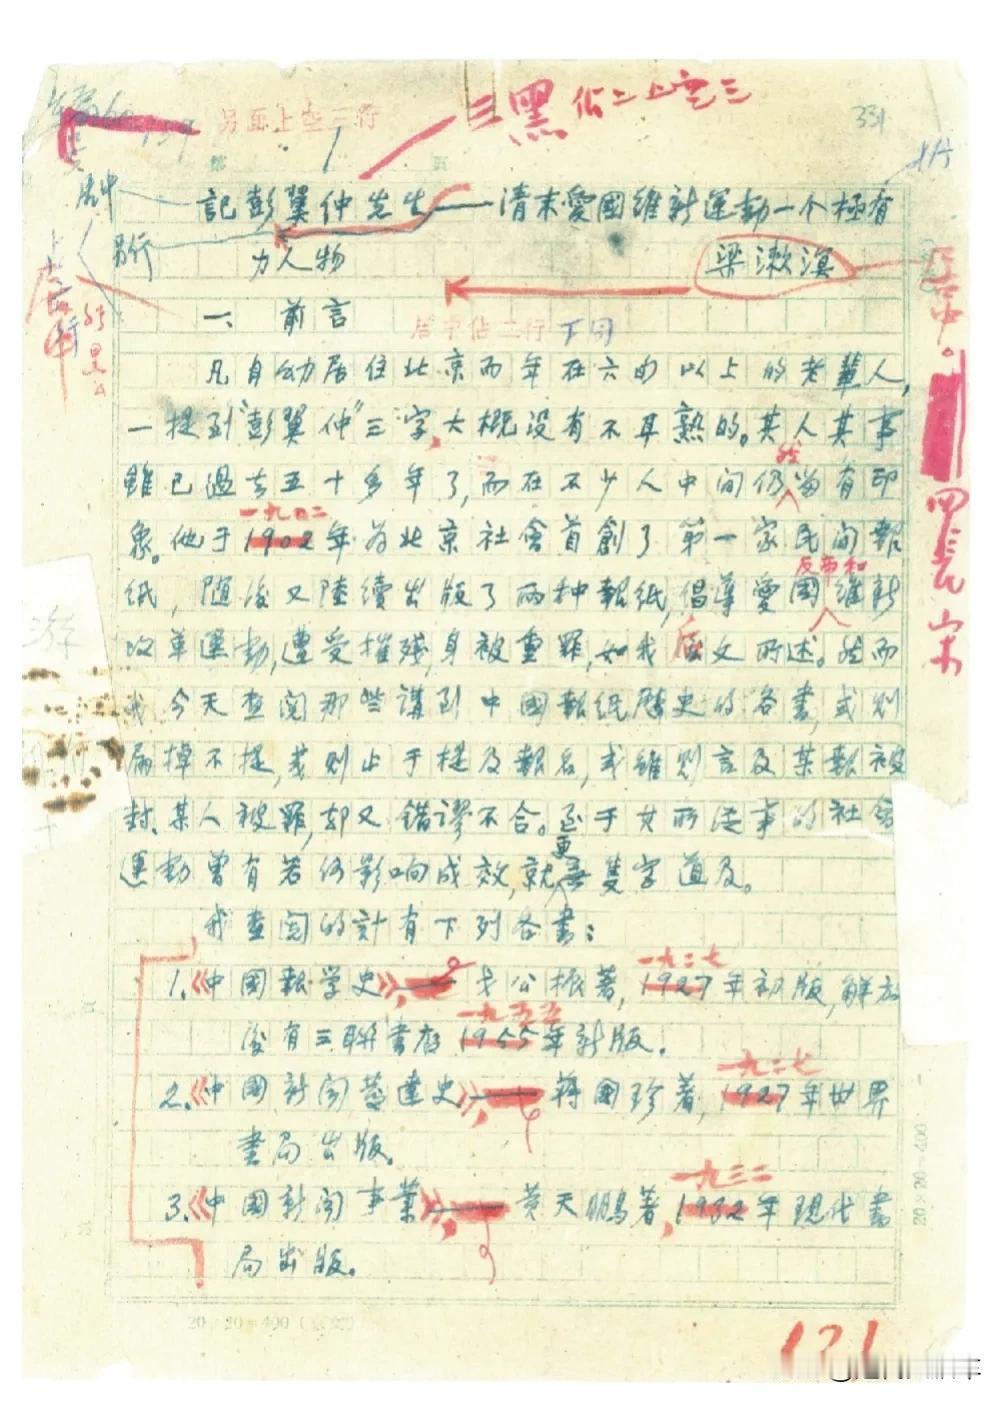 另面上空三行
三黑佔二上空三
331
第 1 頁
居中
記彭翼仲先生——清末愛國維新運動一个極有
另行
力人物
梁漱溟
一、前言
居中佔二行 下同
四長宋
凡自幼居住北京而年在六旬以上的老輩人,
一提到"彭翼仲"三字,大概沒有不耳熟的。其人其事
雖已過去五十多年了,而在不少人中間仍然當有印
象。他于一九〇二1902年為北京社會首創了第一家民間報
紙,随後又陸續出版了两种報紙,倡導愛國反帝和維新
改革運動,遭受摧残,身被重罪,如我後文所述。然而
我今天查閱那些講到中國報紙歷史的各書,或則
漏掉不提,或則止于提及報名,或雖則言及某報被
封、某人被罪,却又錯謬不合。至于其所從事的社會
運動曾有若何影响成效,就更無隻字道及。
我查閱的計有下列各書:
1.《中國報学史》,戈公振著,一九二七1927年初版,解放
後有三聯書店一九五五1955年新版.
2.《中國新聞發達史》,蔣國珍著,一九二七1927年世界
書局出版.
3.《中國新聞事業》,黄天鵬著,一九三二1932年現代書
局出版。
20×20=400
20×20=400
121